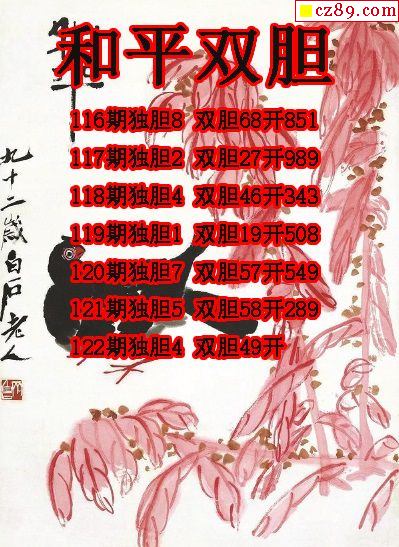 cz89.com
和平双胆
116期独胆8 双胆68开851
117期独胆2 双胆27开989
118期独胆4 双胆46开343
119期独胆1 双胆19开508
120期独胆7 双胆57开549
121期独胆5 双胆58开289
122期独胆4 双胆49开
九十二岁白石老人